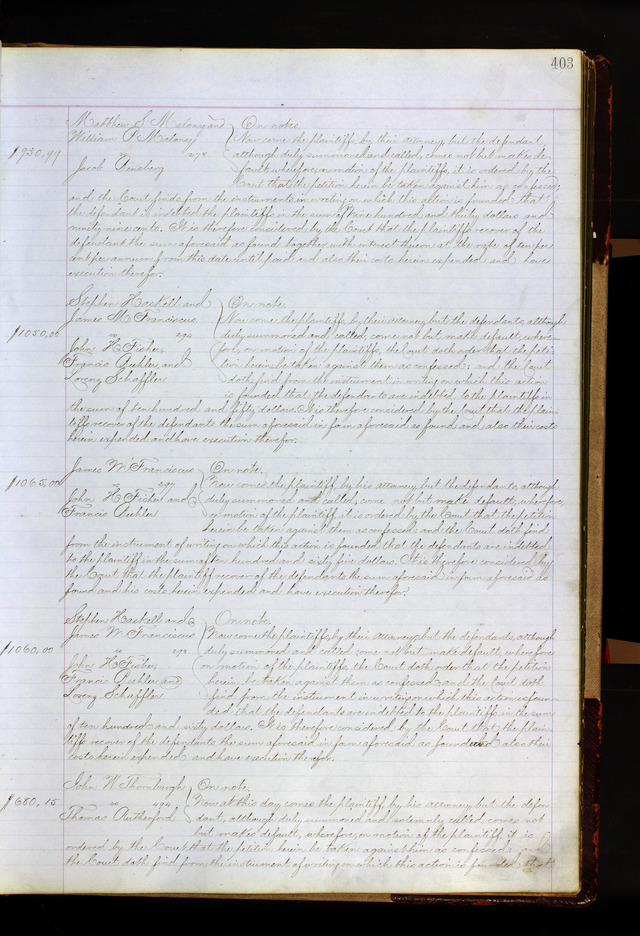 403
Matthew S. Meloney and } On note.
William P. Meloney Now come the plaintiffs by their attorney, but the defendant,
$930,99 vs although duly summoned and called, comes not but makes de-
Jacob fault, wherefore, on motion of the plaintiffs, it is ordered by the
Court that the petition herein be taken against him as confessed;
and the Court finds from the instruments in writing on which this action is founded that
the defendant is indebted to the plaintiffs in the sum of nine hundred and thirty dollars and
ninety nine cents. It is therefore considered by the Court that the plaintiffs recover of the
defendant the sum aforesaid as found together with interest thereon at the rate of ten per
cent per annum from this date until paid and also their costs herein expended and have
execution therefor.
Stephen Haskell and } On note.
James M. Franciscus Now come the plaintiffs, by their attorney but the defendants, although
$1050,00 vs duly summoned and called, come not but make default, where-
John H. Fisher fore, on motion of the plaintiffs, the Court doth order that the peti-
Francis Buhler, and tion herein be taken against them as confessed; and the Court
Lorenz Schaffler doth find from the instrument in writing on which this action
is founded that the defendants are indebted to the plaintiffs in
the sum of ten hundred and fifty dollars. It is therefore considered by the Court that the plain-
tiffs recover of the defendants the sum aforesaid in form aforesaid as found and also their costs
herein expended and have execution therefor.
James W. Franciscus } On note.
Now comes the plaintiff by his attorney but the defendants, although
$1065,00 vs duly summoned and called, come not but make default, wherefore,
John H. Fisher and on motion of the plaintiff it is ordered by the Court that the petition
Francis Buhler herein be taken against them as confessed; and the Court doth find
from the instrument of writing on which this action is founded that the defendants are indebted
to the plaintiff in the sum of ten hundred and sixty five dollars. It is therefore considered by
the Court that the plaintiff recover of the defendants the sum aforesaid in form aforesaid as
found and his costs herein expended and have execution therefor.
Stephen Haskell and } On note.
James W. Franciscus Now come the plaintiffs, by their attorney, but the defendants, although
$1060,00 vs duly summoned and called come not but make default, wherefore
John H. Fisher on motion of the plaintiffs the Court doth order that the petition
Francis Buhler and herein be taken against them as confessed; and the Court doth
Lorenz Schaffler find from the instrument in writing on which this action is foun-
ded that the defendants are indebted to the plaintiffs in the sum
of ten hundred and sixty dollars. It is therefore considered by the Court that the plain-
tiffs recover of the defendants the sum aforesaid in form aforesaid as found and also their
costs herein expended and have execution therefor.
John W. Thornburgh } On note.
$680,15 vs Now at this day comes the plaintiff by his attorney but the defen-
Thomas Rutherford dant, although duly summoned and solemnly called, comes not
but makes default, wherefore, on motion of the plaintiff it is
ordered by the Court that the petition herein be taken against him as confessed; and
the Court doth find from the instrument of writing on which this action is founded that